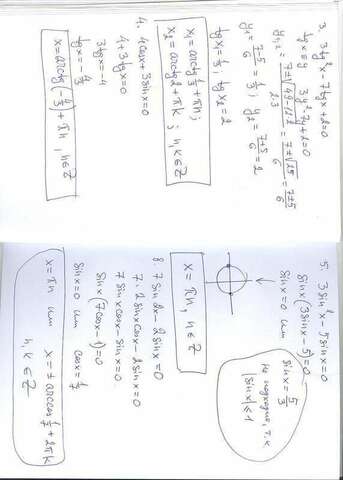 3. 3tg²x - 7tgx + 2 = 0
tgx = y 3y² - 7y + 2 = 0
y₁,₂ = (7 ± √(49 - 12·2)) / (2·3) = (7 ± √25) / 6 = (7 ± 5) / 6
y₁ = (7-5)/6 = 1/3; y₂ = (7+5)/6 = 2
tgx = 1/3; tgx = 2
x₁ = arctg 1/3 + πn;
x₂ = arctg 2 + πk; n, k ∈ Z
4. 4cosx + 3sinx = 0
4 + 3tgx = 0
3tgx = -4
tgx = -4/3
x = arctg(-4/3) + πn, n ∈ Z
5. 3sin²x - 5sinx = 0
sinx(3sinx - 5) = 0
sinx = 0 или sinx = 5/3
не подходит, т.к.
|sinx| ≤ 1
x = πn, n ∈ Z
8. 7sin2x - 2sinx = 0
7·2sinxcosx - 2sinx = 0
7sinxcosx - sinx = 0
sinx(7cosx - 1) = 0
sinx = 0 или cosx = 1/7
x = πn или x = ± arccos 1/7 + 2πk
n, k ∈ Z